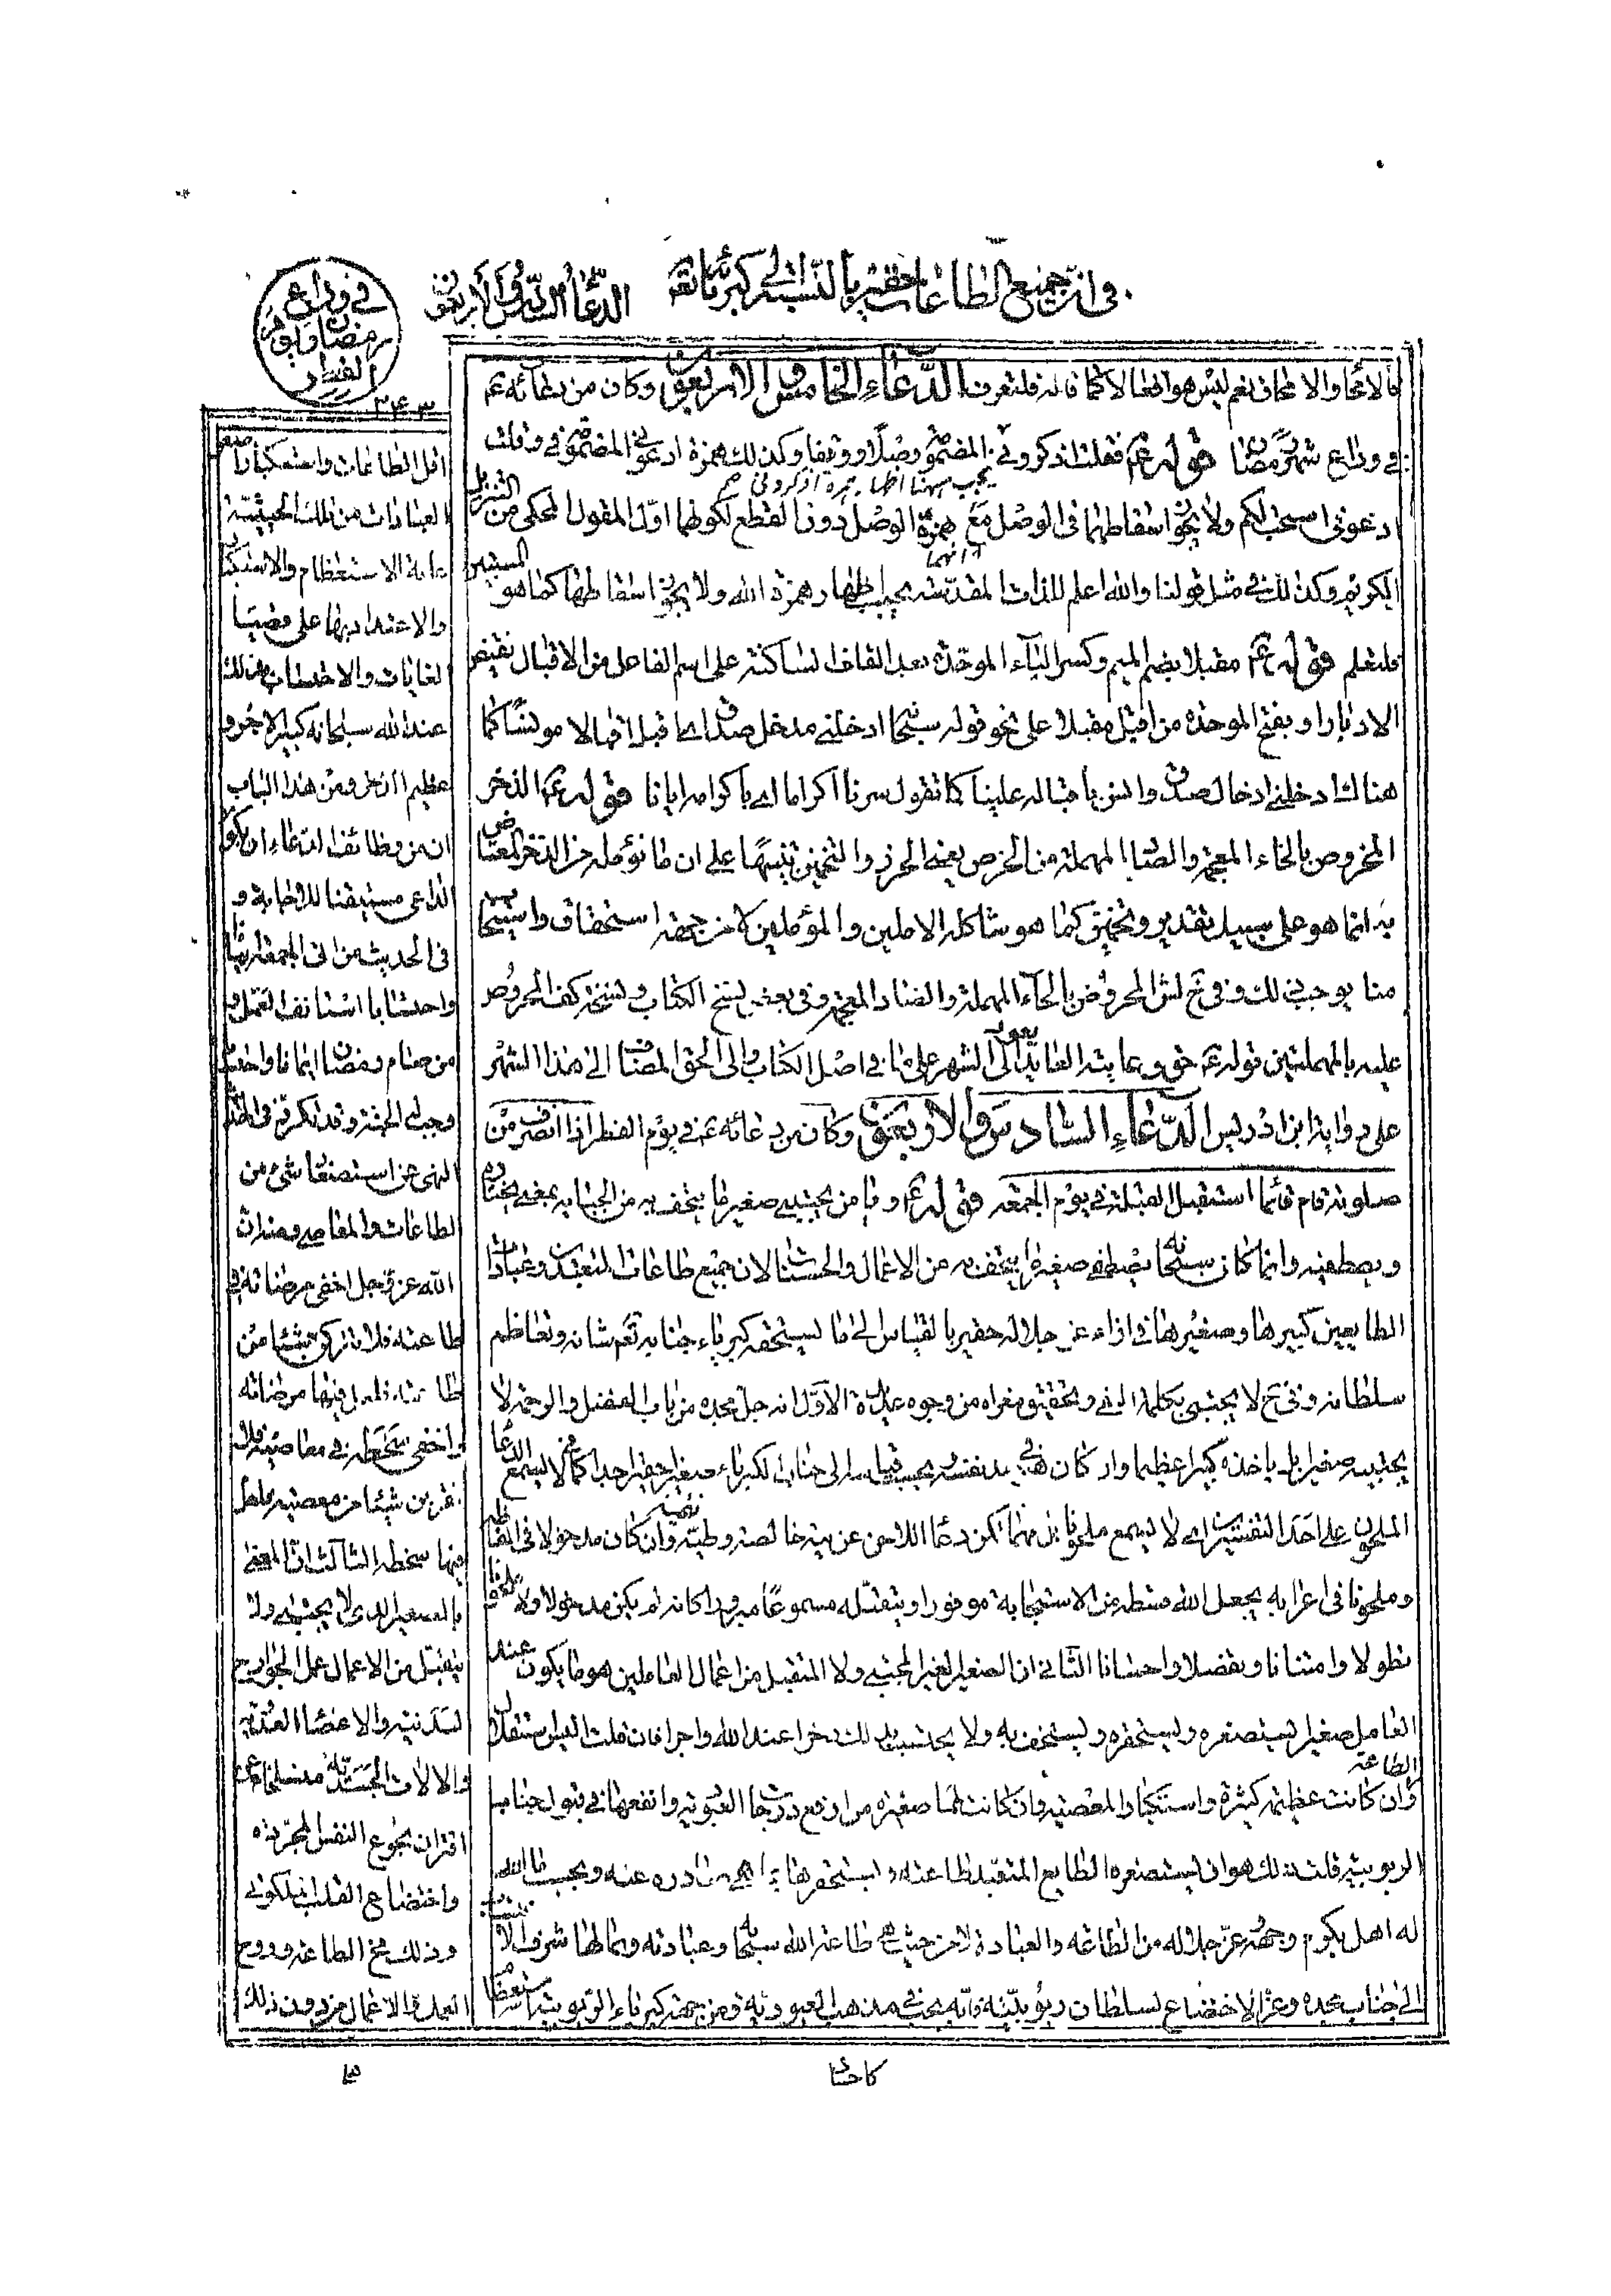 في ان جميع الطاعات حقير بالنسبة الى كبريائه
الدعاء السادس والاربعون
في وداع
رمضان ويوم
الفطر
٢٤٣
فالامحا والامحاق نعم ليس هو ابطالا كما قاله فلتعرف الدعاء الخامس والاربعون وكان من دعائه عم
في وداع شهر رمضان قوله عم فقلت اذكروني المضمو وصلا ووقفا وكذلك همزة ادعوني المضمو في وقلت
يجب ههنا اظهار همزة اذكروني
ادعوني استجب لكم ولا يجوز اسقاطهما في الوصل مع انهما همزة الوصل دون القطع لكونهما اول المقول المحكى من التنزيل
الكريم وكذلك في مثل قولنا والله اعلم للذات المقدسة يجب اظهار همزة الله ولا يجوز اسقاطها كما هو المستبين
فلتعلم قوله عم مقبلا بضم الميم وكسر الباء الموحدة بعد القاف الساكنة على اسم الفاعل من الاقبال نقيض
الادبار او بفتح الموحدة من اقبل مقبلا على نحو قوله سبحانه ادخلني مدخل صدق اى قبل اقبالا مونسا كما
هنالك ادخلني ادخال صدق وانس باقباله علينا كما تقول سرنا اكراما اى باكرامه ايانا قوله عم الذخر
المخروص بالخاء المعجمة والصاد المهملة من الخرص بمعنى الحزر والتخمين تنبيها على ان ما نؤمله من الذخر المعتاض
به انما هو على سبيل تقدير وتخمين كما هو شاكلة الاملين والمؤملين لا من جهة استحقاق واستيجاب
منا يوجب ذلك وفي خ لش المحروض بالحاء المهملة والضاد المعجمة وفي بعض نسخ الكتاب ونسخة كف المحروص
عليه بالمهملتين قوله عم حق رعايته العايد يعود الى الشهر على ما في اصل الكتاب والى الحق المضاف الى هذا الشهر
على رواية ابن ادريس الدعاء السادس والاربعون وكان من دعائه عم في يوم الفطر اذا انصرف من
صلوته قام قائما استقبل القبلة في يوم الجمعة قوله عم ويا من يجتبي صغير ما يتحف به من الاجتباء بمعنى يختاره
ويصطفيه وانما كان سبحانه يصطفي صغير ما يتحف به من الاعمال والحسنات لان جميع طاعات المتعبدين وعبادات
الطايعين كبيرها وصغيرها في ازاء عز جلاله حقير بالقياس الى ما يستحقه كبرياء جنابه تعم شانه وتعاظم
سلطانه وفي خ لا يجتبي بكلمة النفي وتحقيق مغزاه من وجوه عديدة الاول انه جل مجده من باب الفضل والرحمة لا
يجتبيه صغيرا بل ياخذه كبيرا عظيما وان كان هو في حد نفسه وبحسب قياسه الى جناب الكبرياء صغيرا حقيرا جدا كما لا يسمع الدعاء
الملحون على احد التفسيرين اى لا يسمع ملحونا بل مهما تكن دعاء اللاحن عن نية خالصة وطية نقية وان كان مدخولا في الفاظه
وملحونا في اعرابه يجعل الله قسطه من الاستجابة موفورا ويتقبله مسموعا مبرورا كانه لم يكن مدخولا ولا ملحونا
تطولا وامتنانا وتفضلا واحسانا الثاني ان الصغير الغير المجتبى ولا المتقبل من اعمال العاملين هو ما يكون عند
العامل صغيرا يستصغره ويستحقره ويستخف به ولا يحتسب بذلك ذخرا عند الله واجرا فان قلت اليس استقلال الطاعة
وان كانت عظيمة كثيرة واستكبار المعصية وان كانت لمما صغيرة من ارفع درجات العبودية وانفعها في قبول جناب
الربوبية قلت ذلك هو ان يستصغره الطايع المتعبد طاعته ويستحقرها بما هي صادرة عنه وبحسب ما الله
له اهل بكرم وجهه وعز جلاله من الطاعة والعبادة لا من حيث هي طاعة الله سبحانه وعبادته ولها شرف الانتساب
الى جناب مجده وعز الاختضاع لسلطان ربوبيته فانه يجب في مذهب العبودية ومن جهة كبرياء الربوبية استعظام
اقل الطاعات واستكبار اصغر
العبادات من تلك الحيثية
غاية الاستعظام والاستكبار
والاعتداد بها على قصيا
الغايات والاحتساب بذلك
عند الله سبحانه كبير الاجر و
عظيم الذخر ومن هذا الباب
ان من وظائف الدعاء ان يكون
الداعي مستيقنا للاجابة و
في الحديث من اتى الجمعة ايمانا
واحتسابا استانف العمل و
من صام رمضان ايمانا واحتسابا
وجبت له الجنة وقد تكرر في الحديث
النهى عن استصغار شئ من
الطاعات والمعاصي وان
الله عز وجل اخفى مرضاته في
طاعته فلا تتركوا شيئا من
طاعته فلعل فيها مرضاته
واخفى سخطه في معاصيه فلا
تقربن شيئا من معصيته فلعل
فيها سخطه الثالث ان المعنى
بالصغير الذي لا يجتبى ولا
يتقبل من الاعمال عمل الجوارح
البدنية والاعضاء العنصرية
والالات الجسدية منسلخا عن
اقتران بخوع النفس المجردة
واختضاع القلب الملكوتي
وذلك مخ الطاعة وروح
العبادة والاعمال من دون ذلك
كاجساد